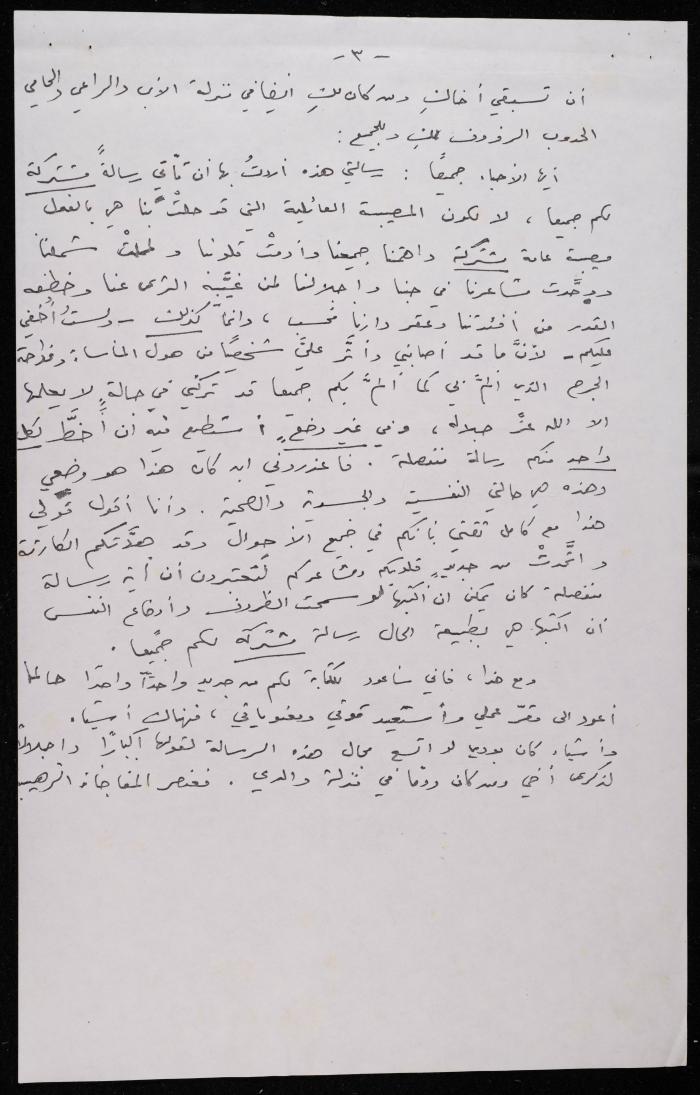 -٣-
أن تسبقي أخاكِ ومن كان لكِ ايضاً في منزلة الأب والراعي والحامي
الحدوب الرؤوف لكِ وللجميع :
أيها الأحباء جميعًا : رسالتي هذه أردتُ بها ان تأتي رسالةً مشتركة
لكم جميعا ، لا لكون المصيبة العائلية التي قد حلّتْ بنا هي بالفعل
مصيبة عامة مشتركة داهمتنا جميعنا وأدمتْ قلوبنا و شملنا
ووحَّدت مشاعرنا في حبنا واجلالنا لمن غيَّبه الثرى عنا وخطفه
القدر من أفئدتنا وعقر دارنا فحسب ، وانما كذلك - ولستُ أُخفي
عليكم - لأنَّ ما قد أصابني وأثَّر عليَّ شخصيًا من هول المأساة وفداحة
الجرح الذي ألمَّ بي كما ألمَّ بكم جميعا قد تركني في حالةٍ لا يعلمها
الا الله عزَّ جلاله ، وفي غير وضعٍ أستطيع فيه أن أخطَّ لكل
واحد منكم رسالة منفصلة . فاعذروني ان كان هذا هو وضعي
وهذه هي حالتي النفسية والجسدية والصحية . وأنا أقول قولي
هذا مع كامل ثقتي بأنكم في جميع الأحوال وقد هدَّتكم الكارثة
واتَّحدتْ من جديدٍ قلوبكم ومشاعركم لتعتبرون أن أية رسالة
منفصلة كان يمكن ان أكتبها لو سمحت الظروف وأوضاع النفس
أن اكتبها هي بطبيعة الحال رسالة مشتركة لكم جميعا .
ومع هذا ، فاني سأعود للكتابة لكم من جديد واحدًا واحدًا حالما
أعود الى مقرّ عملي وأستعيد قوتي ومعنوياتي ، فهناك أشياء
وأشياء كان بودي لو اتسع مجال هذه الرسالة لقولها إكبارًا واجلالًا
لذكرى أخي ومن كان دومًا في منزلة والدي . فعنصر المفاجأة الرهيب